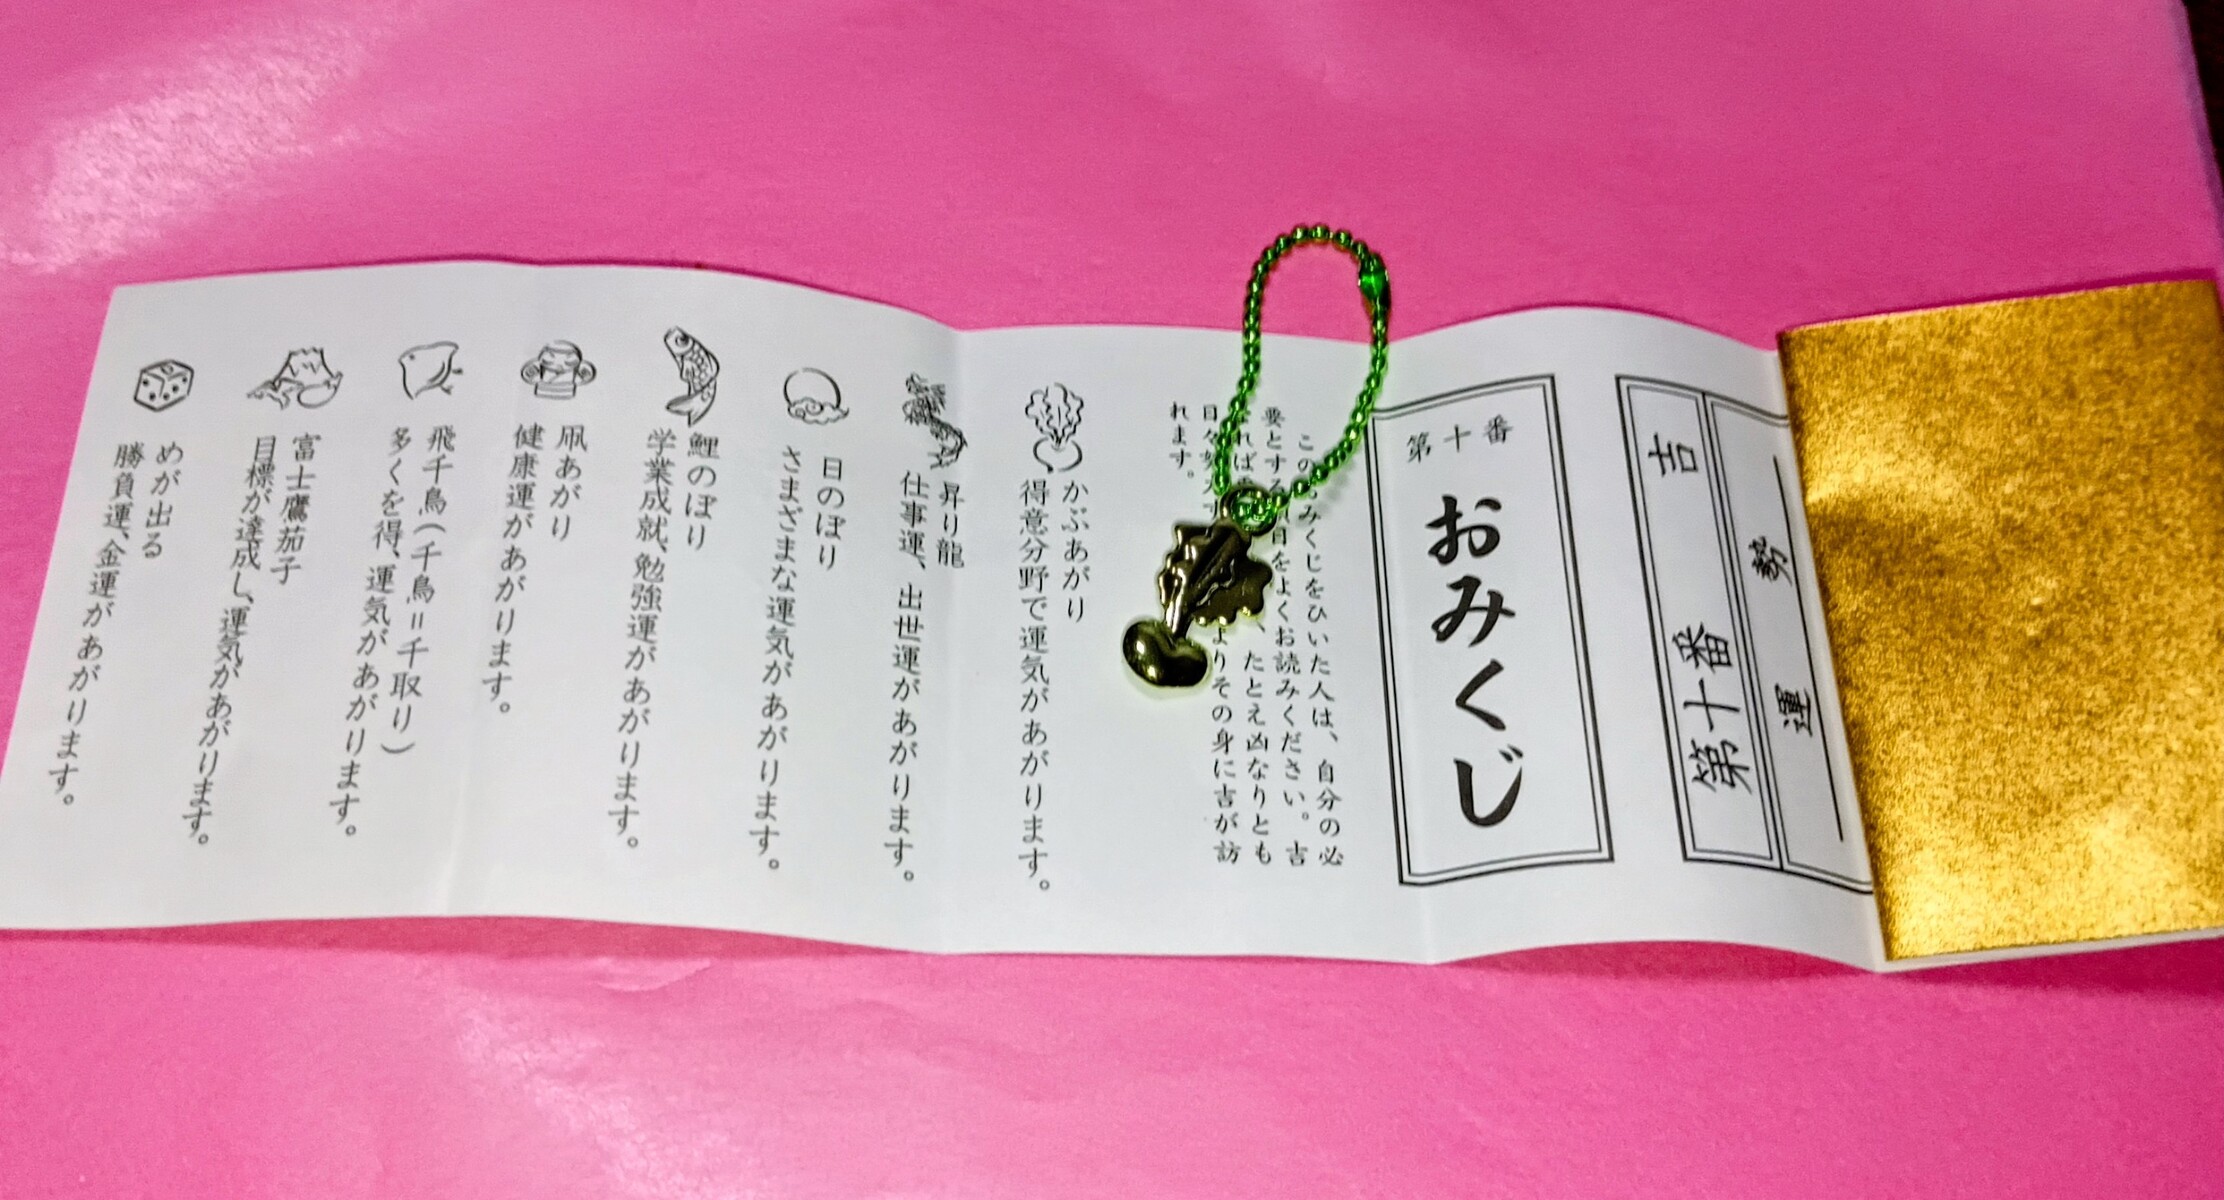 第十番 吉
運勢
第十番
おみくじ
この みくじをひいた人は、自分の必
要とする 目をよくお読みください。吉
れば 、たとえ凶なりとも
日々努力す よりその身に吉が訪
れます。
かぶあがり
得意分野で運気があがります。
昇り龍
仕事運、出世運があがります。
日のぼり
さまざまな運気があがります。
鯉のぼり
学業成就、勉強運があがります。
凧あがり
健康運があがります。
飛千鳥(千鳥=千取り)
多くを得、運気があがります。
富士鷹茄子
目標が達成し、運気があがります。
めが出る
勝負運、金運があがります。